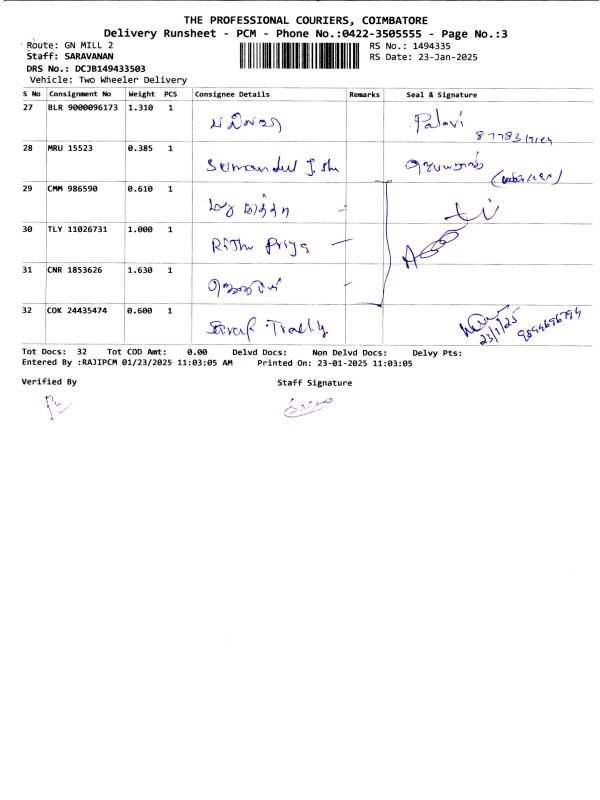 THE PROFESSIONAL COURIERS, COIMBATORE
Delivery Runsheet - PCM - Phone No.:0422-3505555 - Page No.:3
Route: GN MILL 2
RS No.: 1494335
Staff: SARAVANAN
RS Date: 23-Jan-2025
DRS No.: DCJB149433503
Vehicle: Two Wheeler Delivery
S No Consignment No Weight PCS Consignee Details Remarks Seal & Signature
27 BLR 9000096173 1.310 1 Palavi
28 MRU 15523 0.385 1
29 CMM 986590 0.610 1
30 TLY 11026731 1.000 1 Rithu Priya
31 CNR 1853626 1.630 1
32 COK 24435474 0.600 1
23/1/25
9894696794
Tot Docs: 32 Tot COD Amt: 0.00 Delvd Docs: Non Delvd Docs: Delvy Pts:
Entered By :RAJIPCM 01/23/2025 11:03:05 AM Printed On: 23-01-2025 11:03:05
Verified By Staff Signature